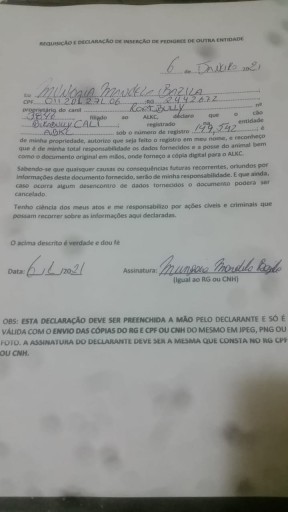 REQUISIÇÃO E DECLARAÇÃO DE INSERÇÃO DE PEDIGREE DE OUTRA ENTIDADE
6 2021
Eu
CPF RG 2442672
proprietário do canil nº
filiado ao ALKC, declaro que o cão
CALI registrado na entidade
sob o número de registro é
de minha propriedade, autorizo que seja feito o registro em meu nome, e reconheço
que é de minha total responsabilidade os dados fornecidos e a posse do animal bem
como o documento original em mãos, onde forneço a cópia digital para o ALKC.
Sabendo-se que quaisquer causas ou consequências futuras recorrentes, oriundos por
informações deste documento fornecido, serão de minha responsabilidade. E que ainda,
caso ocorra algum desencontro de dados fornecidos o documento poderá ser
cancelado.
Tenho ciência dos meus atos e me responsabilizo por ações cíveis e criminais que
possam recorrer sobre as informações aqui declaradas.
O acima descrito é verdade e dou fé
Data: 6/1/2021 Assinatura:
(Igual ao RG ou CNH)
OBS: ESTA DECLARAÇÃO DEVE SER PREENCHIDA A MÃO PELO DECLARANTE E SÓ É
VÁLIDA COM O ENVIO DAS CÓPIAS DO RG E CPF OU CNH DO MESMO EM JPEG, PNG OU
FOTO. A ASSINATURA DO DECLARANTE DEVE SER A MESMA QUE CONSTA NO RG CPF
OU CNH.